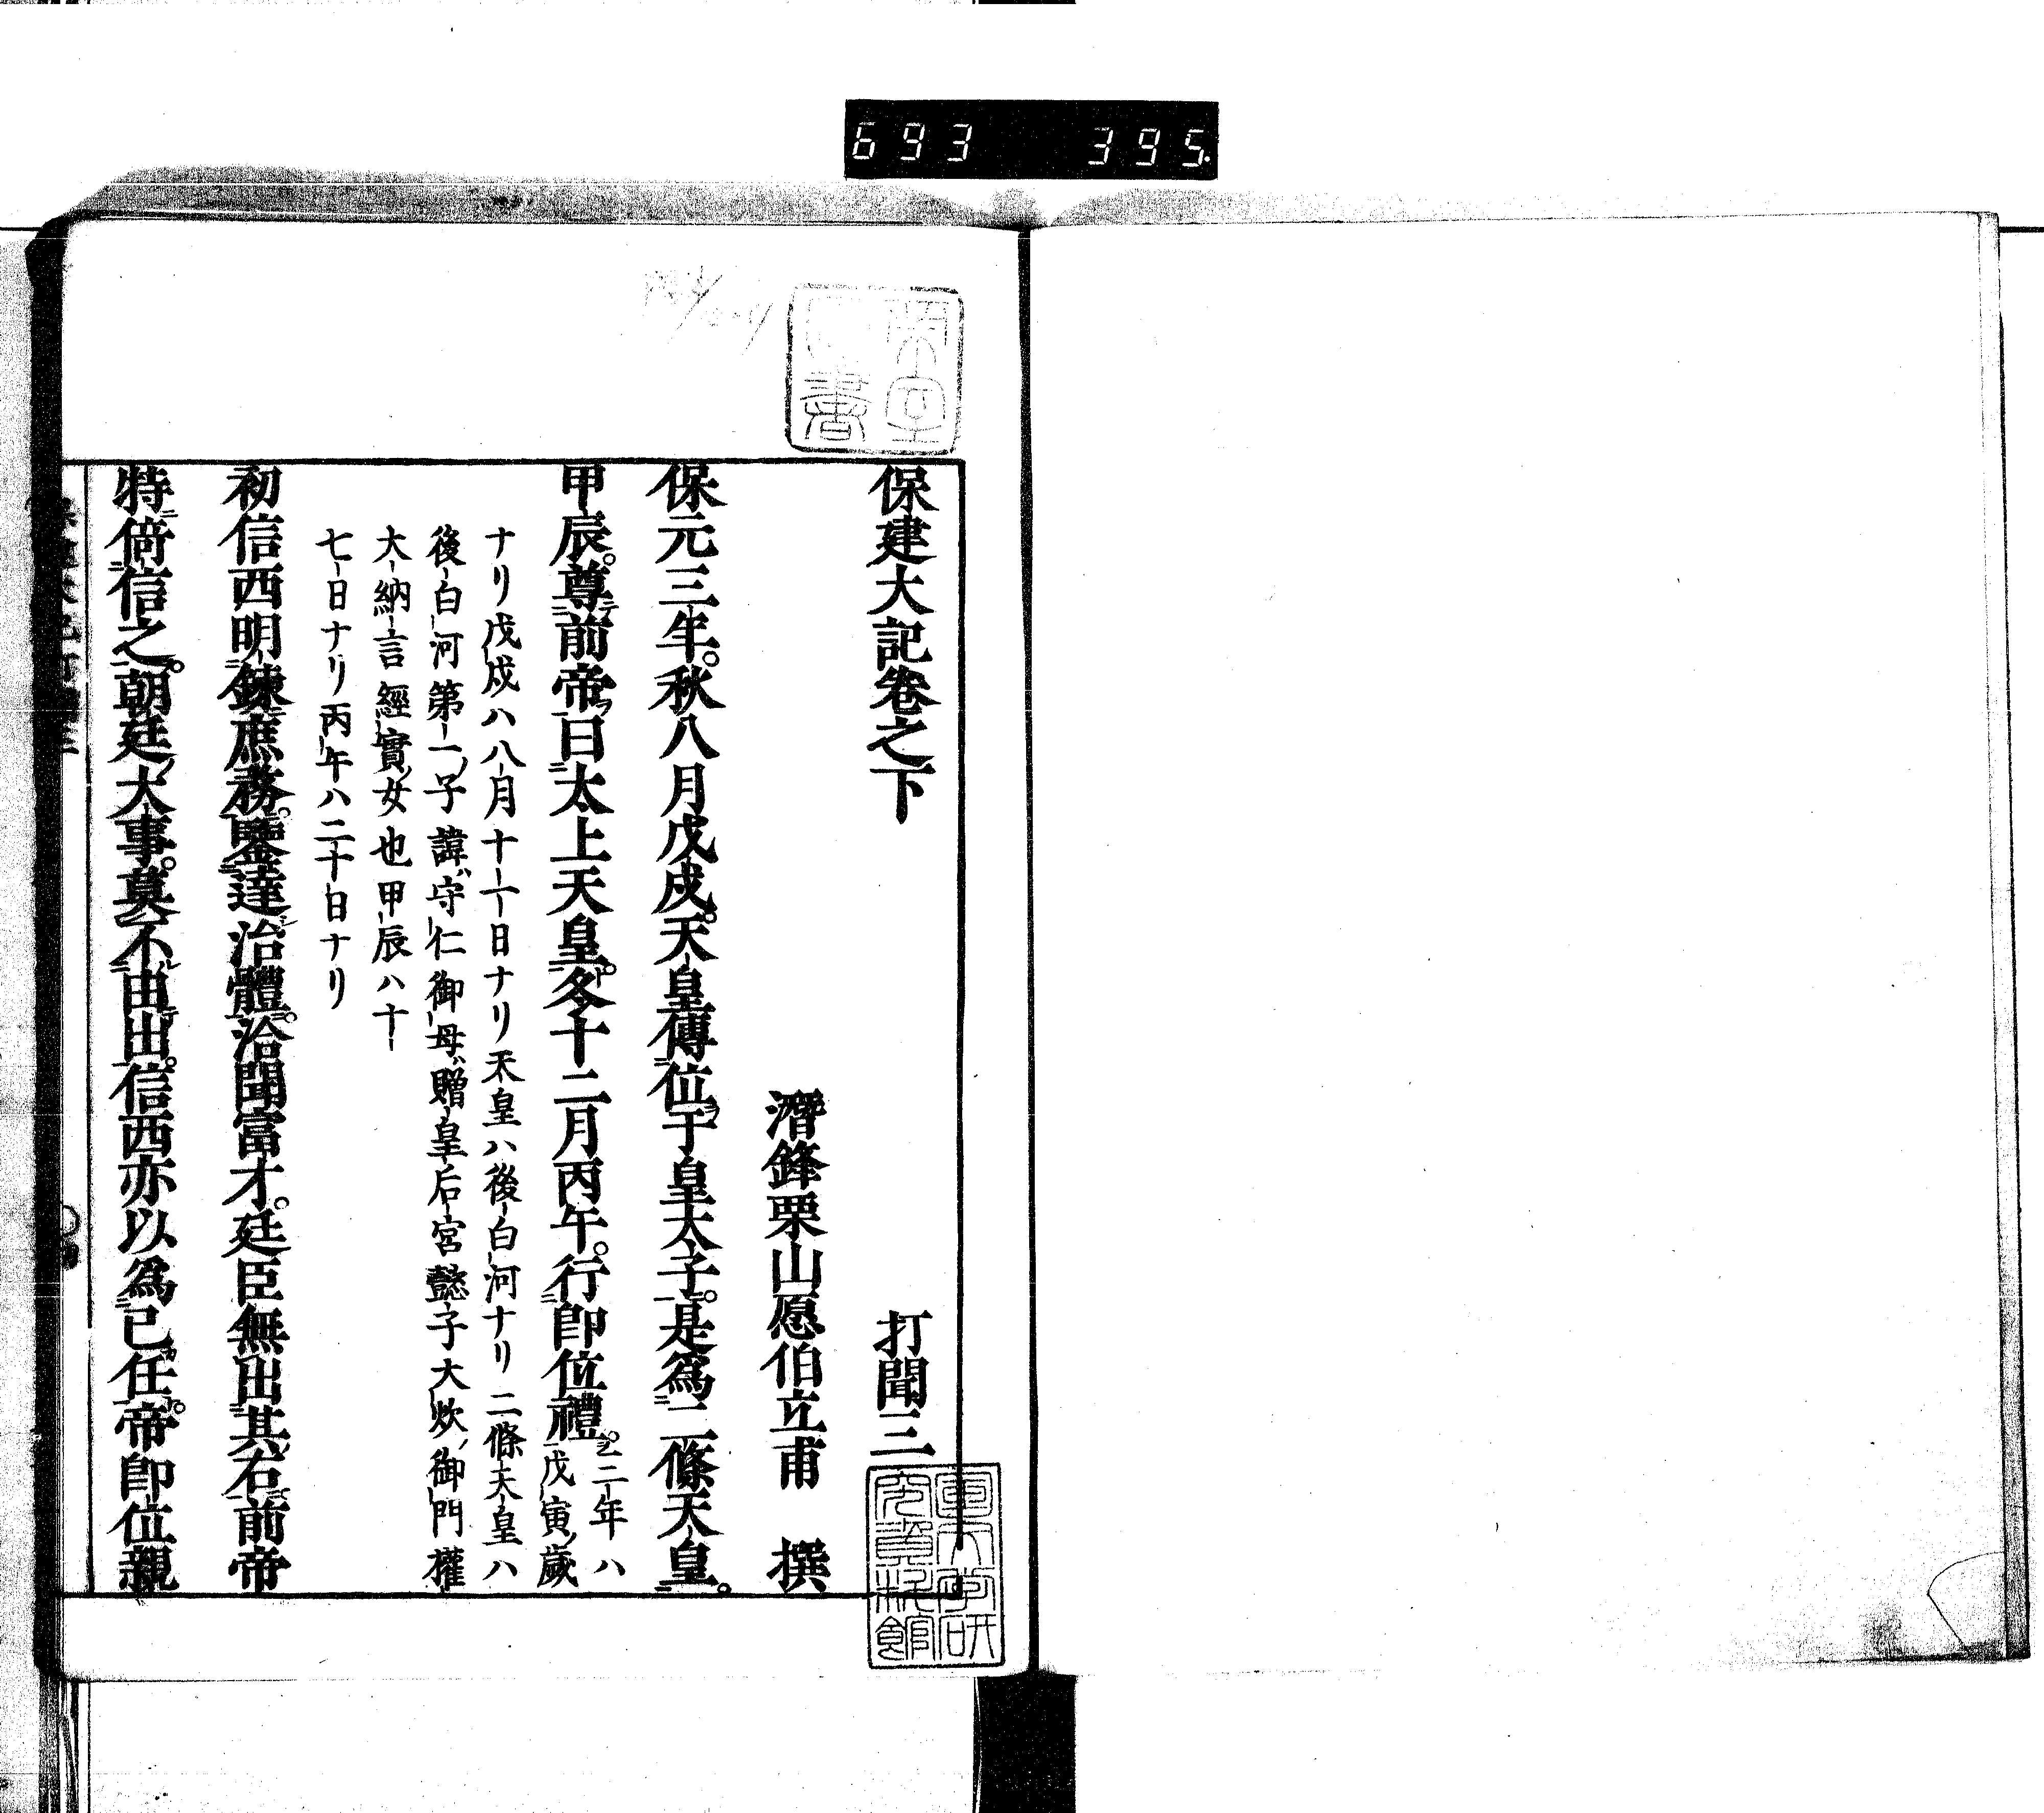 693 395
保建大記卷之下 打聞三
潛鋒栗山愿伯立甫 撰
保元三年。秋八月戊戌。天皇傳位于皇太子。是爲二條天皇。
甲辰。尊前帝曰太上天皇。冬十二月丙午。行卽位禮。三年ハ
戊寅ノ歲
ナリ戊戌ハ八月十一日ナリ天皇ハ後白河ナリ二條天皇ハ
後白河第一ノ子諱ハ守仁御母ハ贈皇后宮懿子大炊ノ御門權
大納言經實ノ女也甲辰ハ十
七日ナリ丙午ハ二十日ナリ
初信西明鍊庶務。鑒達治體。洽聞富才。廷臣無出其右。前帝
特倚信之。朝廷大事。莫不由出。信西亦以爲己任。帝卽位親